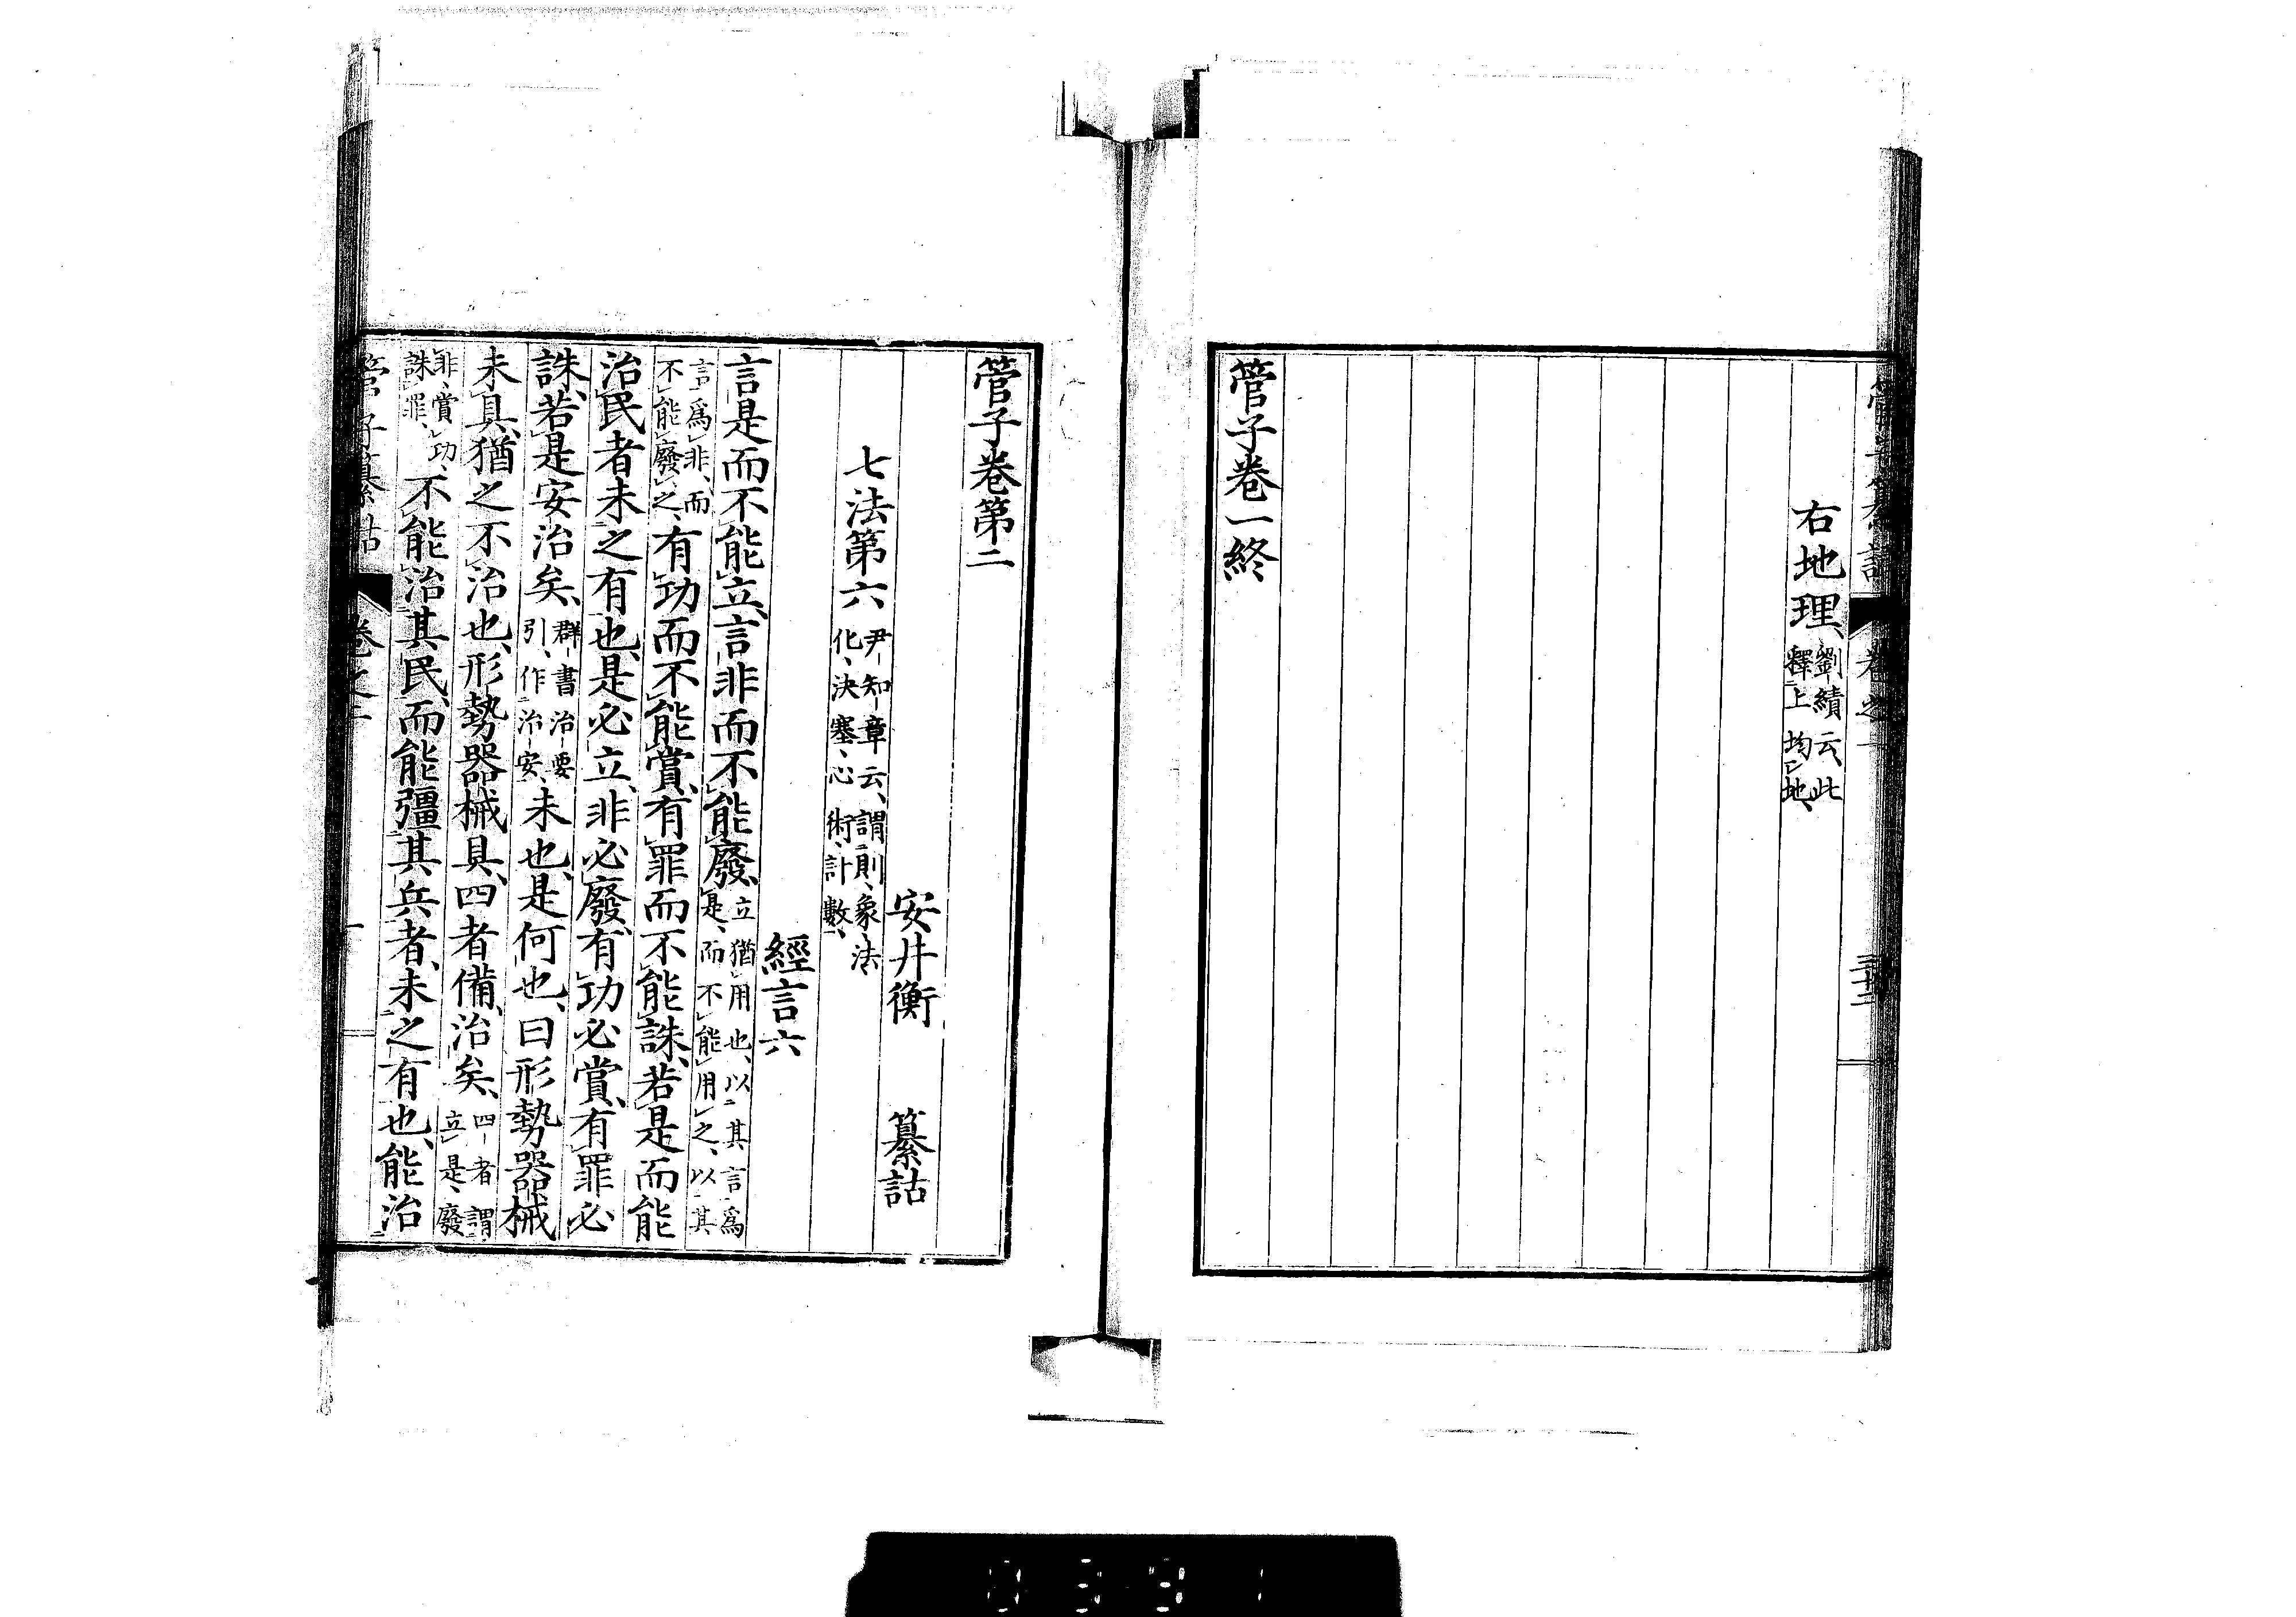 管子纂詁　卷之一　三十二
右地理、劉績云、此釋上均地、
管子卷一終
管子卷第二
安井衡　纂詁
七法第六　尹知章云、謂則、象、法、化、決塞、心術、計數、
經言六
言是而不能立、言非而不能廢、立猶用也、以其言爲是、而不能用之、以其
言爲非、而不能廢之、有功而不能賞、有罪而不能誅、若是而能
治民者、未之有也、是必立、非必廢、有功必賞、有罪必
誅、若是安治矣、群書治要引、作治安、未也、是何也、曰形勢器械
未具、猶之不治也、形勢器械具、四者備、治矣、四者謂立是、廢
非、賞功、誅罪、不能治其民、而能彊其兵者、未之有也、能治
管子纂詁　卷之二　一